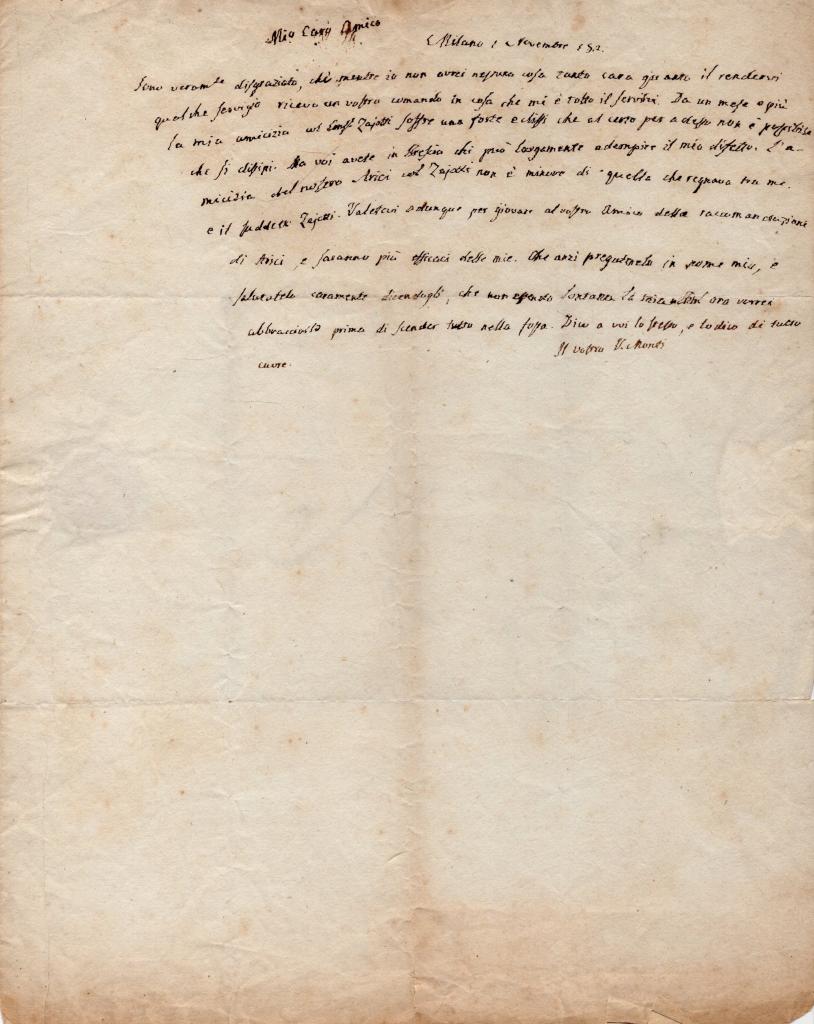 Mio Caro Amico
Milano 1 Novembre 182.
Sono veramte disgraziato, chè mentre io non avrei nessuna cosa tanto cara quanto il rendervi
qualche servigio ricevo un vostro comando in cosa che mi è tolto il servirvi. Da un mese e più
la mia amicizia col Consr Zajotti soffre una forte eclissi che al certo per adesso non è possibile
che si dissipi. Ma voi avete in Brescia chi può largamente adempire il mio difetto. L'a-
micizia del nostro Arici col Zajotti non è minore di quella che regnava tra me
e il suddetto Zajotti. Valetevi adunque per giovare al vostro Amico della raccomandazione
di Arici, e saranno più efficaci delle mie. Che anzi pregatenelo in nome mio, e
salutatelo caramente dicendogli, che non essendo lontana la mia ora vorrei
abbracciarlo prima di scender tutto nella fossa. Dico a voi lo stesso, e lo dico di tutto
cuore.
Il vostro V. Monti